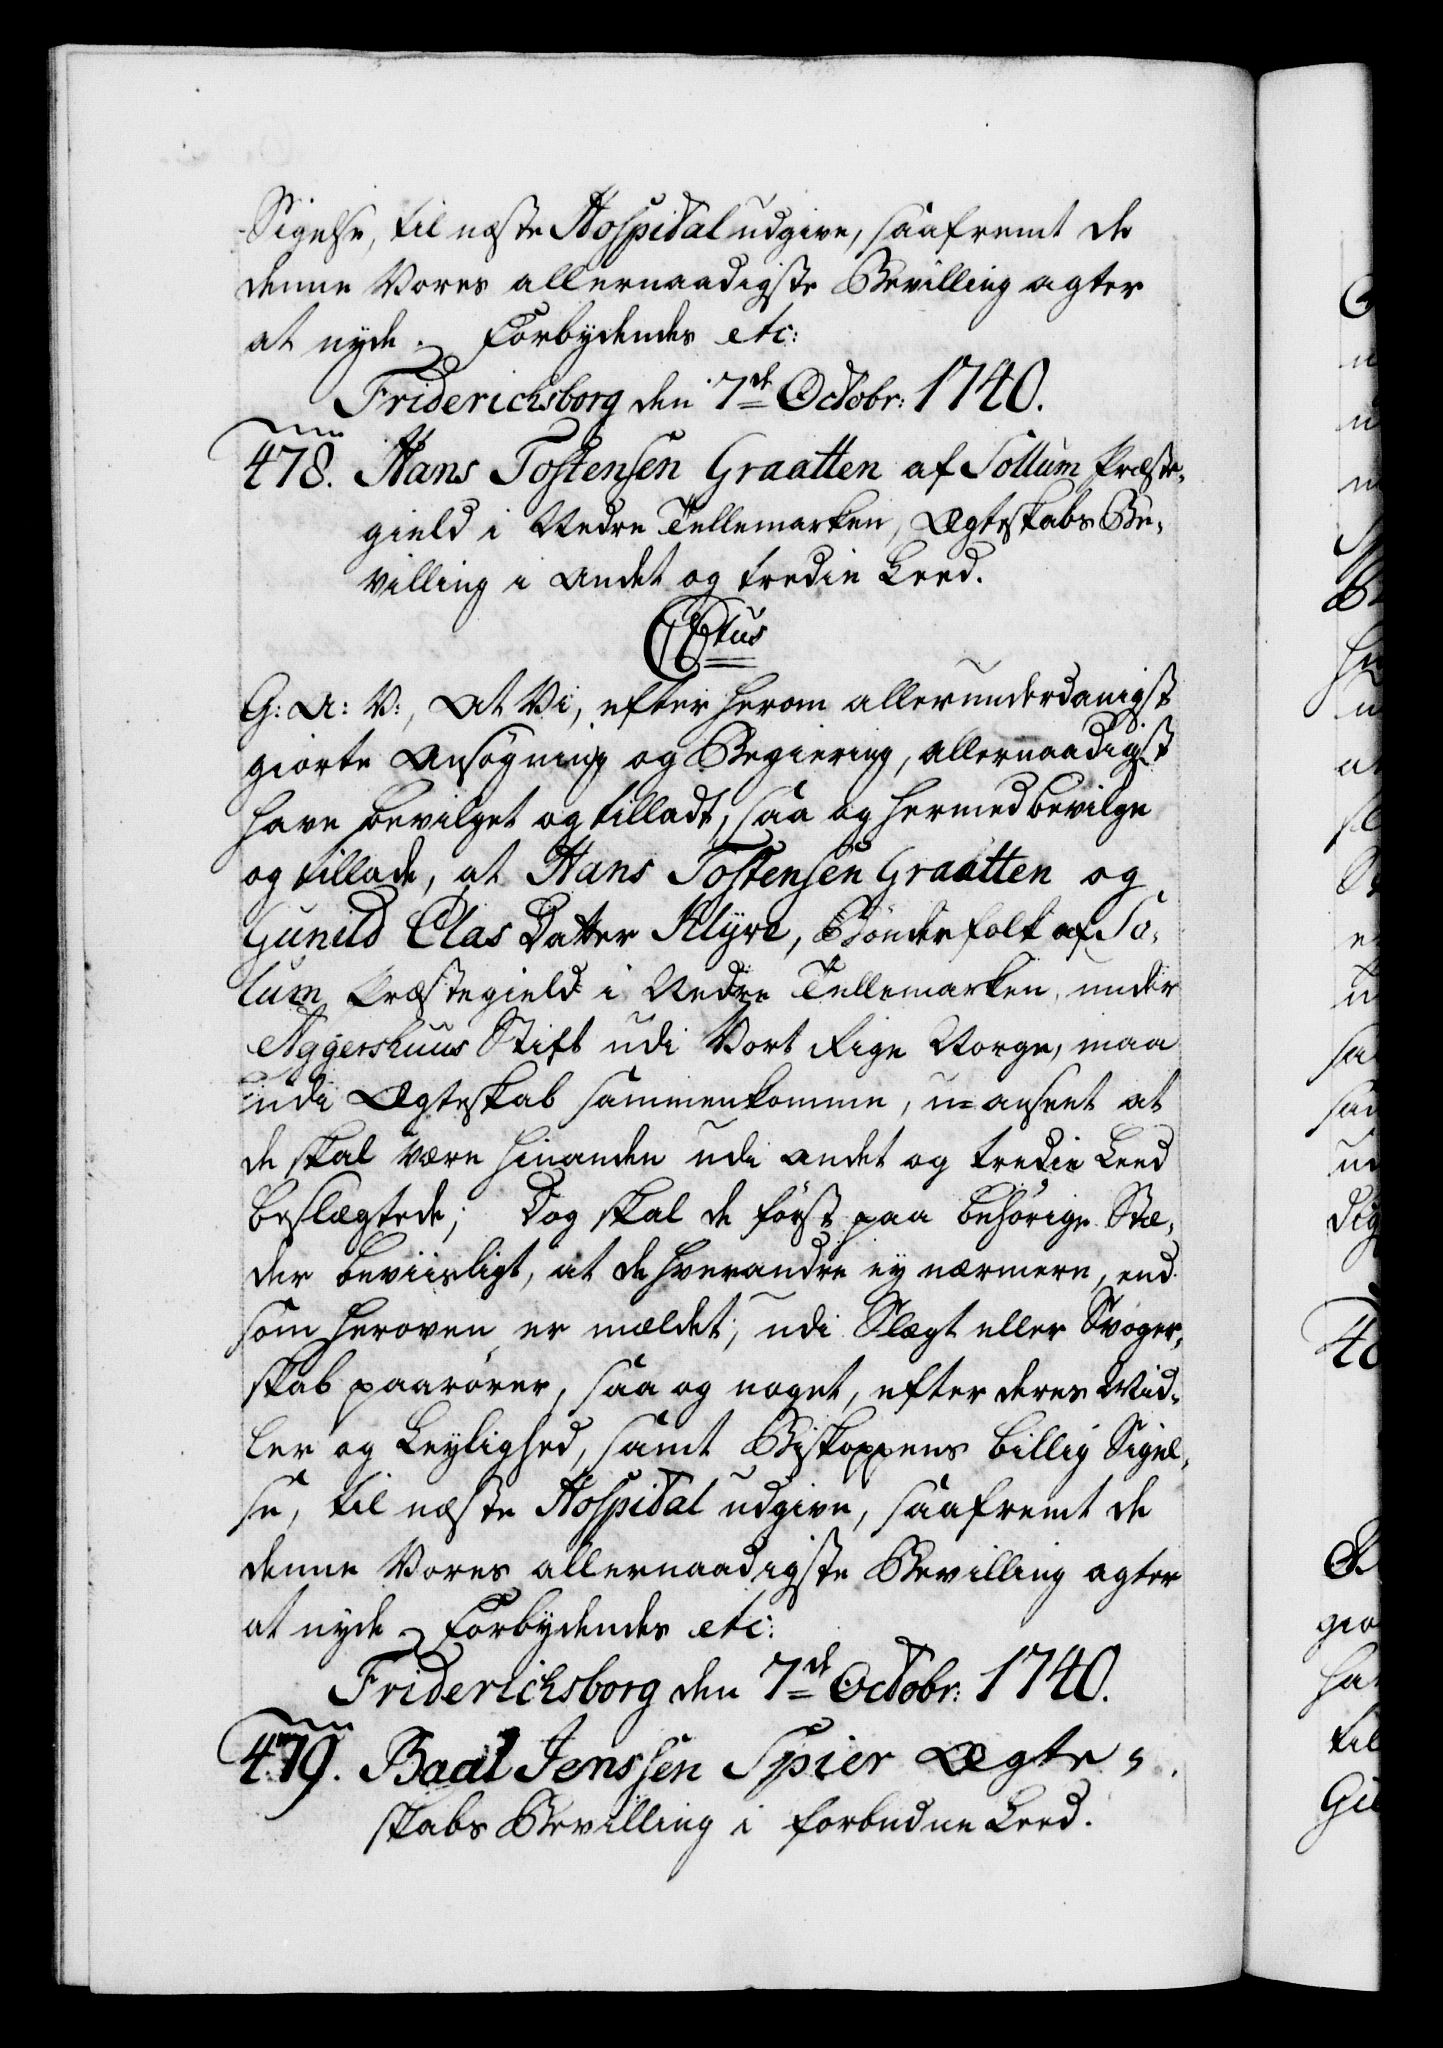 Sigelse, til næste Hospital udgive, saafremt de
denne Vores allernaadigste Bevilling agter
at nyde. Forbydendes etc:
Friderichsborg den 7de Octobr: 1740.
478. Hans Tostensen Graatten af Sollum Præste-
gield i Nedre Tellemarken, Ægteskabs Be-
villing i Andet og tredie Leed.
CVItus
G: A: V:, At Vi, efter herom allerunderdanigst
giorte Ansøgning og Begiering, allernaadigst
have bevilget og tilladt, saa og hermed bevilge
og tillade, at Hans Tostensen Graatten og
Gunild Clas Datter Klyve, Bønderfolk af So-
lum Præstegield i Nedre Tellemarken, under
Aggershuus Stift udi Vort Rige Norge, maa
udi Ægteskab sammenkomme, u-anseet at
de skal være hinanden udi andet og tredie Leed
beslægtede; Dog skal de først paa behørige Stæ-
der beviisligt, at de hverandre ey nærmere, end
som heroven er mældet, udi Slægt eller Svoger-
skab paarører, saa og noget, efter deres Mid-
ler og Leylighed, samt Biskoppens billig Sigel-
se, til næste Hospital udgive, saafremt de
denne Vores allernaadigste Bevilling agter
at nyde. Forbydendes etc:
Friderichsborg den 7de Octobr: 1740.
479. Baal Jenssen Spier Ægte-
skabs Bevilling i forbudne Leed.